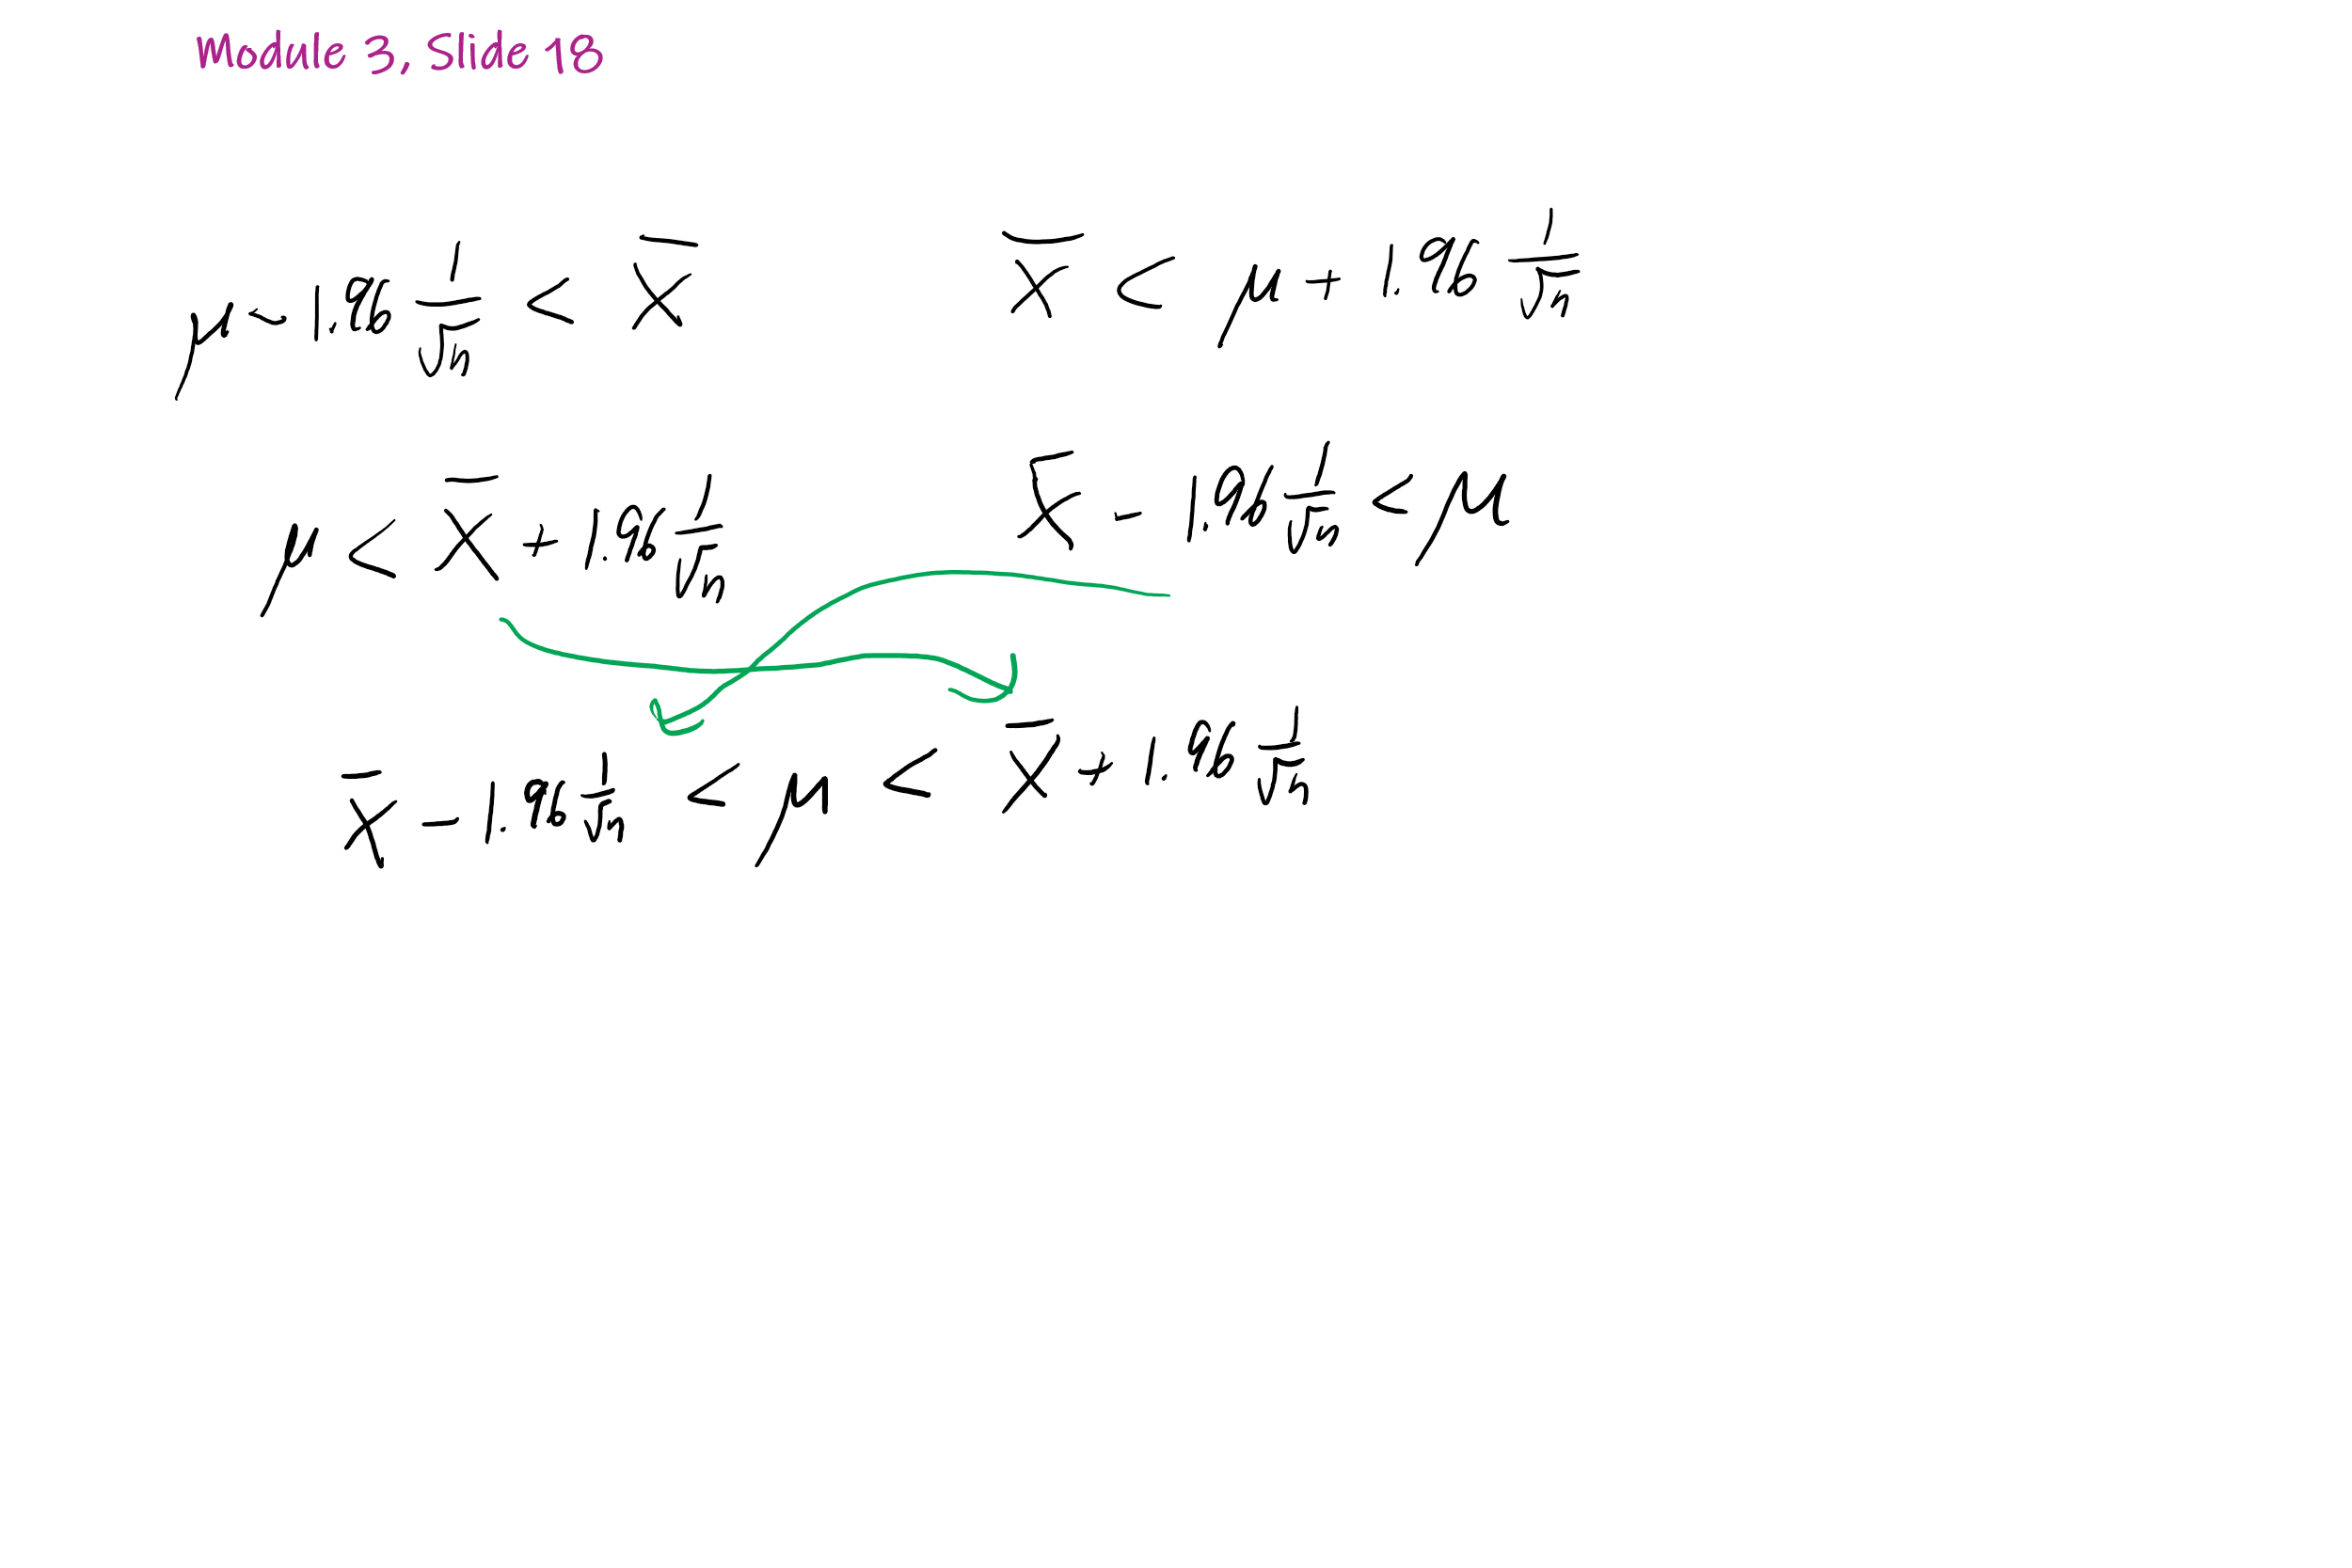 Module 3, Slide 18
μ - 1.96 1/√n < X̄    X̄ < μ + 1.96 1/√n
μ < X̄ + 1.96 1/√n    X̄ - 1.96 1/√n < μ
X̄ - 1.96 1/√n < μ < X̄ + 1.96 1/√n